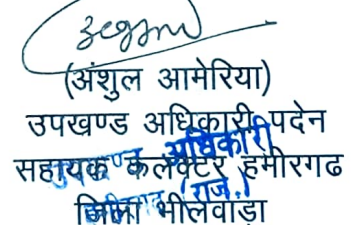 (अंशुल आमेरिया)
उपखण्ड अधिकारी पदेन
सहायक कलेक्टर हमीरगढ
जिला भीलवाडा
अधिकारी
(राज.)